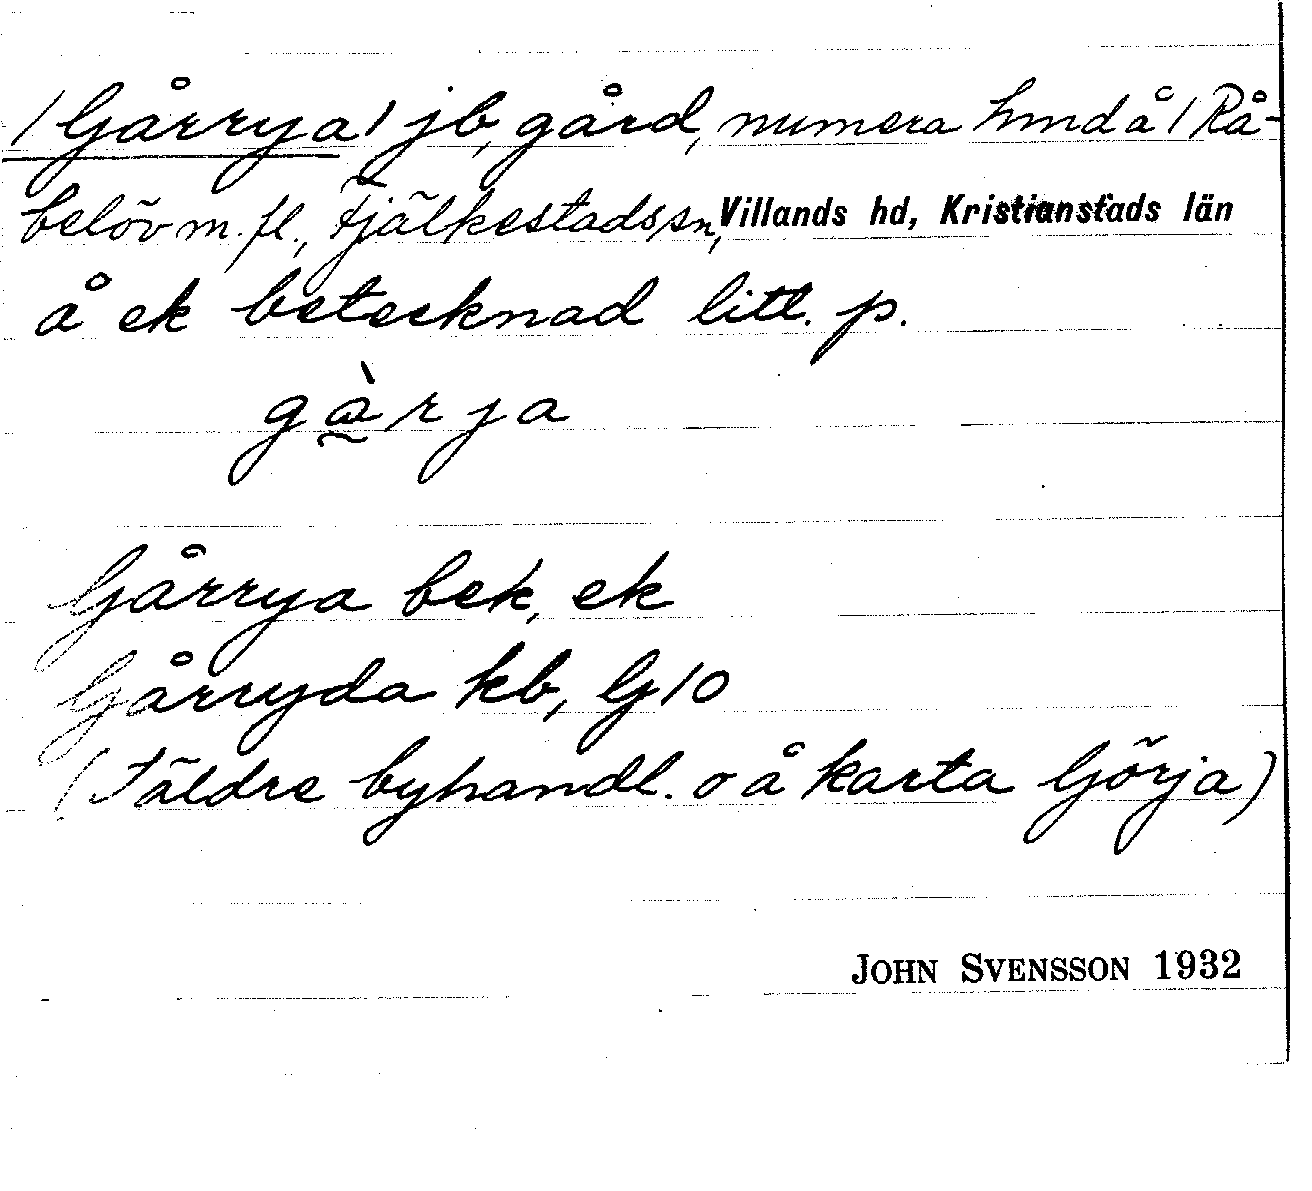 /Gårrya/ jb, gård, numera hmd å 1 Rå-
belöv m. fl., Fjälkestads sn, Villands hd, Kristianstads län
å ek betecknad litt. p.
gàrja
Gårrya bek, ek
Gårryda kb, G10
(I äldre byhandl. o å karta Görja)
JOHN SVENSSON 1932